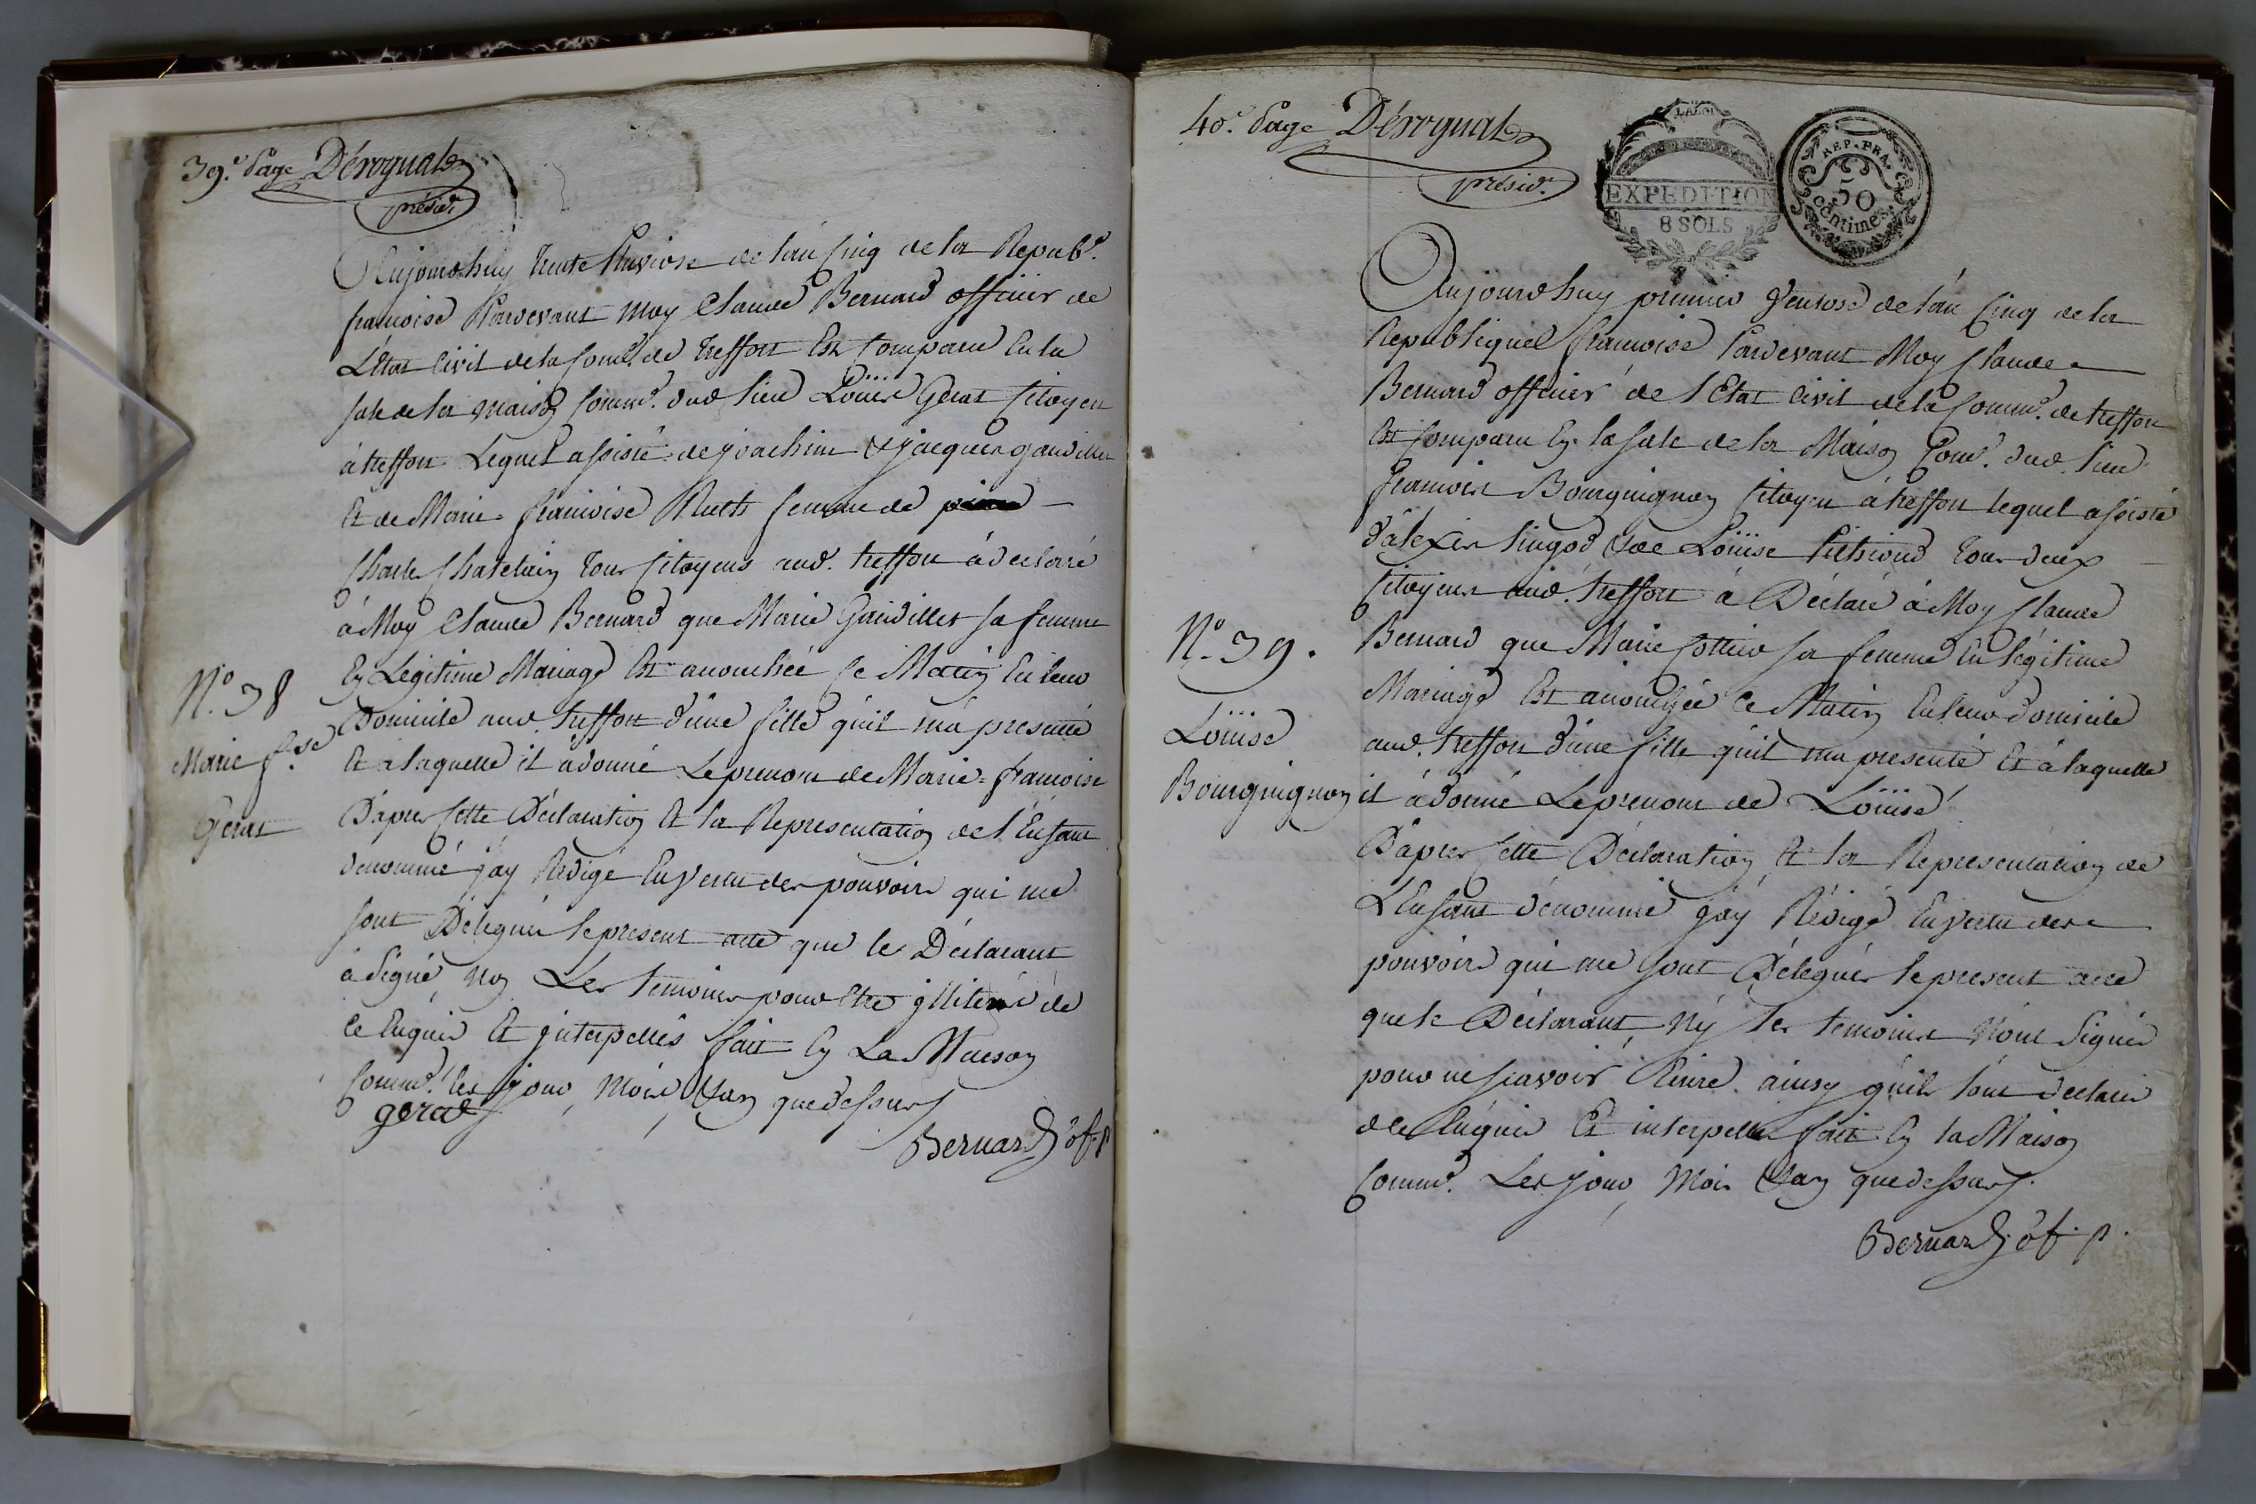 39.e Page Dérognat
présid.t
Aujourdhuy trente Pluviose de l'an Cinq de la Republ.e
francoise Pardevant moy Claude Bernard officier de
L'Etat Civil de la Comm.e de treffort Est Comparu En la
sale de la maison Comm.e dud lieu Loüis Gerat Citoyen
à treffort Lequel assisté de joachim & jacques gaudillet
Et de Marie francoise Ruth femme de
Charle Chatelain tous Citoyens aud. treffort à declaré
à Moy Claude Bernard que Marie Gaudillet sa femme
En Legitime Mariage Est accouchée Ce Matin En leur
Domicile aud. treffort d'une fille qu'il m'a presenté
Et a laquelle il à donné Le prenom de Marie=francoise
D'apres Cette Déclaration Et la Representation de l'Enfant
denommé j'ay Rédigé En Vertu des pouvoirs qui me
sont Délegués le present acte que le Déclarant
à Signé, non Les temoins pour être jlliteré de
Ce Enquis Et jnterpellés fait En La Maison
Comm.e les jour, Mois & an que dessus
gerat
Bernard of. p
N.o 38
Marie f.se
Gerat
40.e Page Dérognat
présid.t
EXPEDITION
8 SOLS
REP. FRA.
50
centimes.
Aujourdhuy premier Ventose de l'an Cinq de la
Republique francoise Pardevant Moy Claude
Bernard officier de l'Etat Civil de la Comm.e de treffort
Est Comparu En la sale de la Maison Com.e dud. lieu
francois Bourguignon Citoyen à treffort lequel assisté
d'alexis lingod & de Loüise Pithioud tous deux
Citoyens aud. treffort à Déclaré à Moy Claude
Bernard que Marie Cottier sa femme En légitime
Mariage Est accouchée Ce Matin En leur domicile
aud. treffort d'une fille qu'il m'a presenté Et à laquelle
il à donné Le prenom de Loüise
D'apres Cette Déclaration, Et la Representation de
L'Enfant dénommé j'ay Rédigé En Vertu des
pouvoirs qui me sont Délegués le present acte
que le Déclarant, Ny les temoins N'ont Signés
pour ne scavoir Ecrire. ainsy qu'ils l'ont declaré
de Ce Enquis Et interpellés fait En la Maison
Comm.e Les jour, Mois & an que dessus.
Bernard. of. p.
N.o 39.
Loüise
Bourguignon